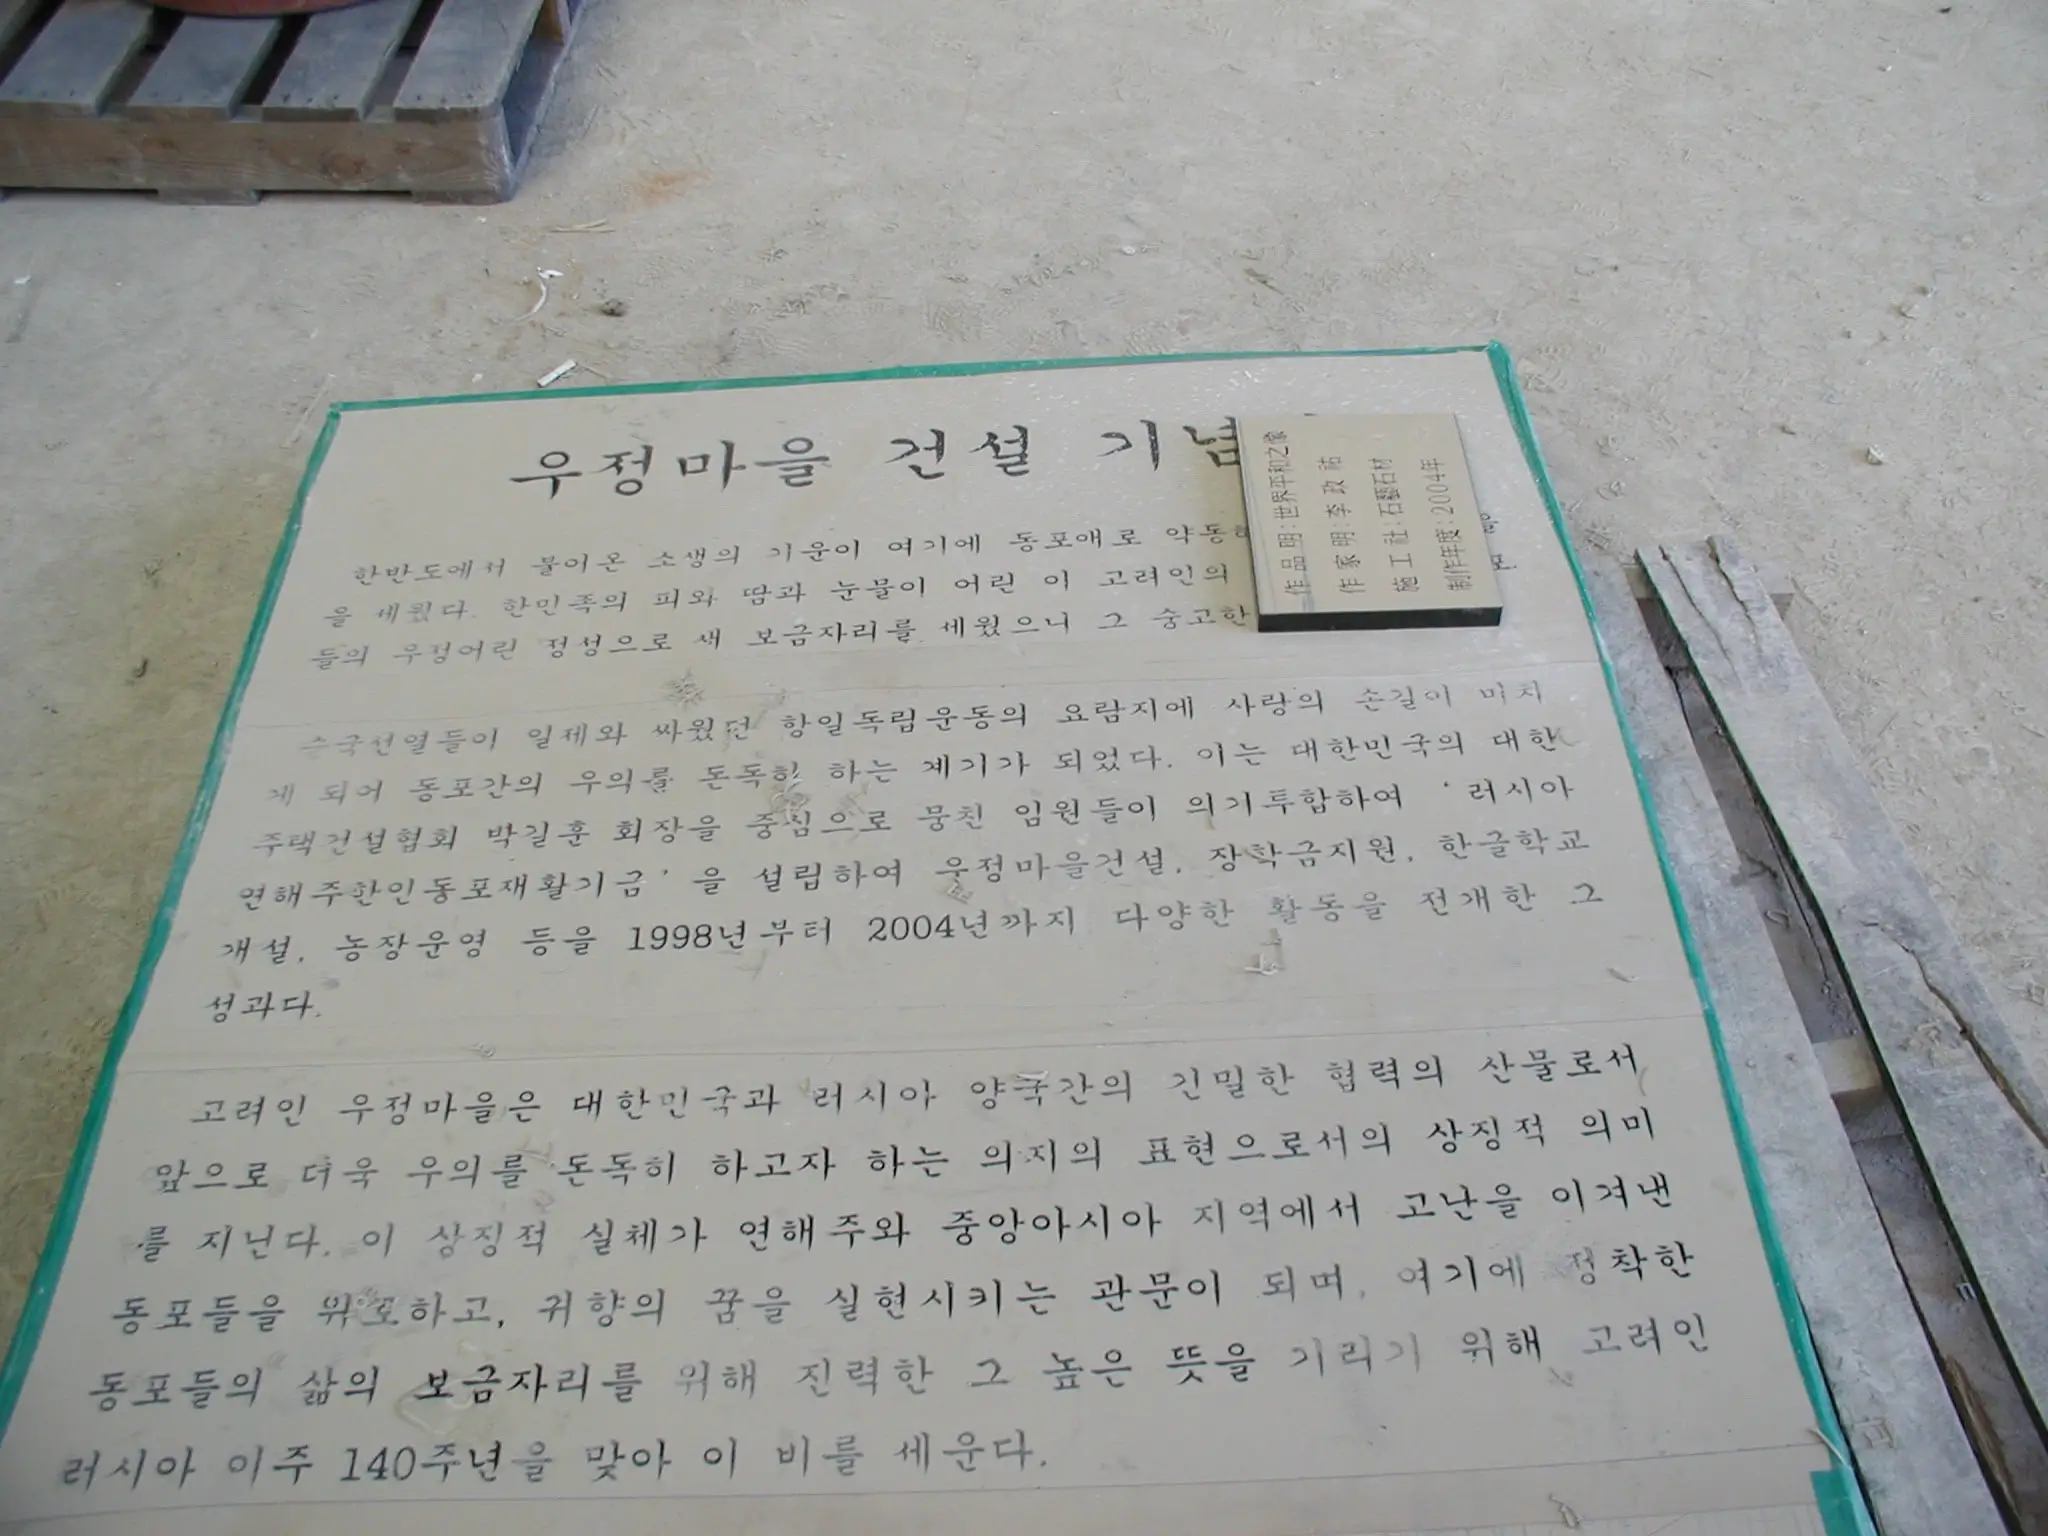 우정마을 건설 기념
한반도에서 불어온 소생의 기운이 여기에 동포애로 약동
을 세웠다. 한민족의 피와 땀과 눈물이 어린 이 고려인의
들의 우정어린 정성으로 새 보금자리를 세웠으니 그 숭고한
순국선열들이 일제와 싸웠던 항일독립운동의 요람지에 사랑의 손길이 미치
게 되어 동포간의 우의를 돈독히 하는 계기가 되었다. 이는 대한민국의 대한
주택건설협회 박길훈 회장을 중심으로 뭉친 임원들이 의기투합하여 '러시아
연해주한인동포재활기금'을 설립하여 우정마을건설, 장학금지원, 한글학교
개설, 농장운영 등을 1998년부터 2004년까지 다양한 활동을 전개한 그
성과다.
고려인 우정마을은 대한민국과 러시아 양국간의 긴밀한 협력의 산물로서
앞으로 더욱 우의를 돈독히 하고자 하는 의지의 표현으로서의 상징적 의미
를 지닌다. 이 상징적 실체가 연해주와 중앙아시아 지역에서 고난을 이겨낸
동포들을 위로하고, 귀향의 꿈을 실현시키는 관문이 되며, 여기에 정착한
동포들의 삶의 보금자리를 위해 진력한 그 높은 뜻을 기리기 위해 고려인
러시아 이주 140주년을 맞아 이 비를 세운다.
作品明:世界平和之像
作家明:李政祜
施工社:石藝石材
制作年度:2004年